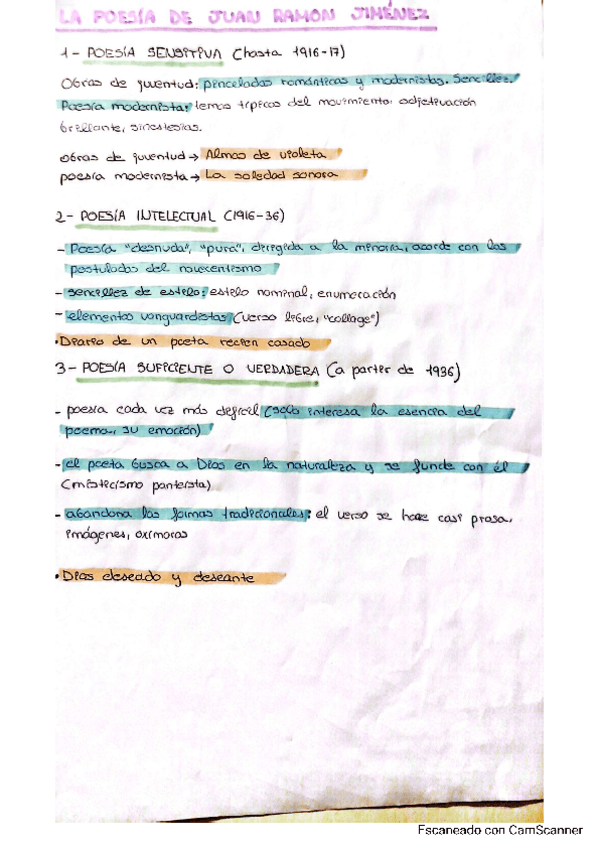 LA POESÍA DE JUAN RAMÓN JIMÉNEZ
1- POESÍA SENSITIVA (hasta 1916-17)
Obras de juventud: pinceladas románticas y modernistas. Sencillez.
Poesía modernista: temas típicos del movimiento: adjetivación
brillante, sinestesias.
obras de juventud → Almas de violeta
poesía modernista → La soledad sonora
2- POESÍA INTELECTUAL (1916-36)
- Poesía "desnuda", "pura", dirigida a la minoría, acorde con los
postulados del novecentismo
- sencillez de estilo: estilo nominal, enumeración
- elementos vanguardistas (verso libre, "collage")
• Diario de un poeta recien casado
3- POESÍA SUFICIENTE O VERDADERA (a partir de 1936)
- poesía cada vez más difícil (solo interesa la esencia del
poema, su emoción)
- el poeta busca a Dios en la naturaleza y se funde con él
(misticismo panteísta)
- abandona las formas tradicionales: el verso se hace casi prosa,
imágenes, oxímoros
• Dios deseado y deseante
Escaneado con CamScanner